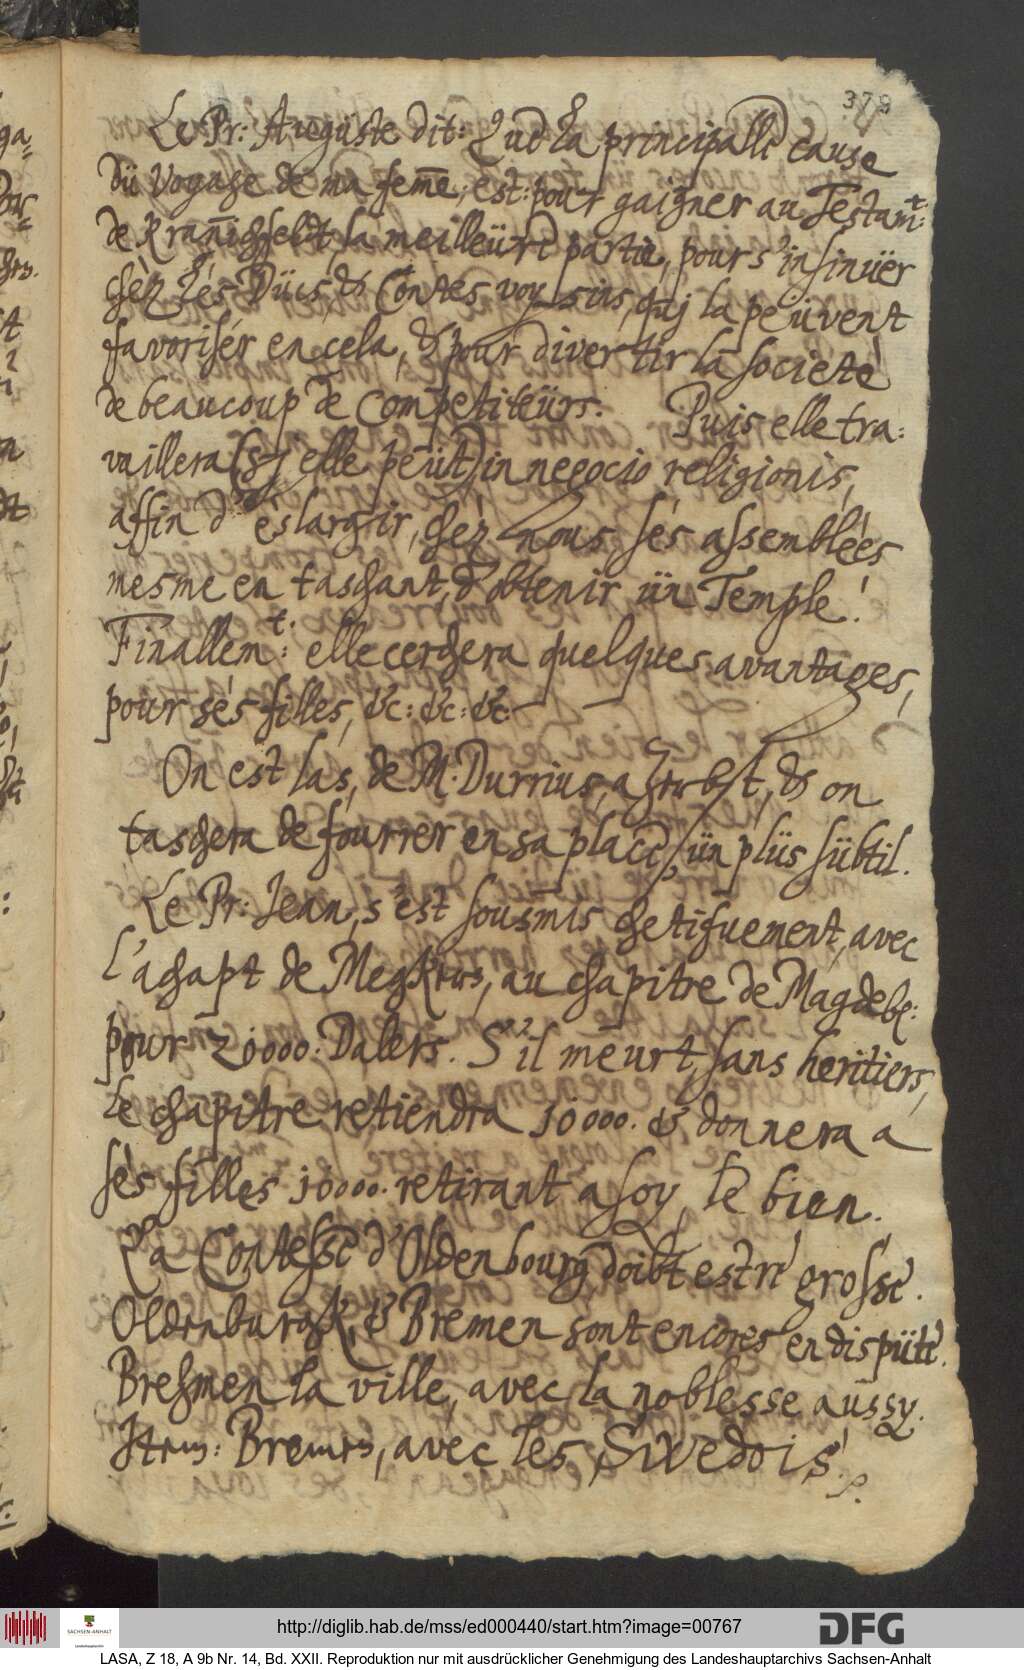 379
Le Pr: Auguste dit: Que La principalle cause
dü Voyage de ma fem̅e, est: pour gaigner au Testam.t:
de Kranichfeldt, la meilleure partie, pour s'insinüer
chèz Lés Dücs, & Contes voysins, quj la peuvent
favorisér en cela, & pour divertir la societè
de beaucoup de Competiteürs. Puis elle tra-
vaillera (sy elle peüt) in negocio religionis,
affin d'éslargir, chéz nous, sés assembléés
mesme en taschant, d'obtenir ün Temple!
Finallem.t: elle cerchera quelques avantages,
pour sés filles, &c: &c: &c.
On est las, de M. Durrius, a Zerbst, & on
taschera de fourrer en sa place, ün plüs sübtil.
Le Pr: Jean, s'est sousmis chetifuement, avec
l'achapt de Megkern, au chapitre de Magdebg:
pour 20000: Dalers. S'il meurt, sans heritiers,
Le chapitre retiendra 10000. & donnera a
sés filles 10000. retirant a soy, le bien.
La Contesse d'Oldenbourg, doibt estre grosse.
Oldenburgk, & Bremen sont encores en dispüte.
Brehmen la ville, avec la noblesse aussy.
Item: Bremen, avec les Swedois. p.
http://diglib.hab.de/mss/ed000440/start.htm?image=00767
DFG
SACHSEN-ANHALT
Landeshauptarchiv
LASA, Z 18, A 9b Nr. 14, Bd. XXII. Reproduktion nur mit ausdrücklicher Genehmigung des Landeshauptarchivs Sachsen-Anhalt